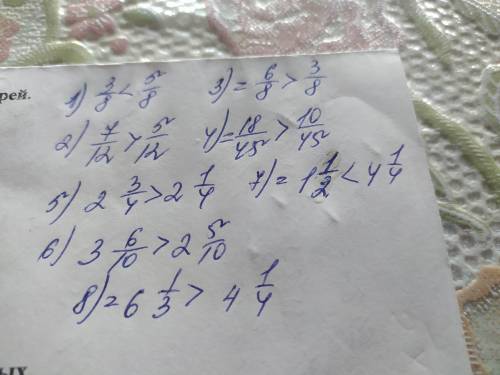 рей.
1) 3/8 < 5/8
3) = 6/8 > 3/8
2) 7/12 > 5/12
4) = 18/45 > 10/45
5) 2 3/4 > 2 1/4
7) = 1 1/2 < 4 1/4
6) 3 6/10 > 2 5/10
8) = 6 1/3 > 4 1/4
ых